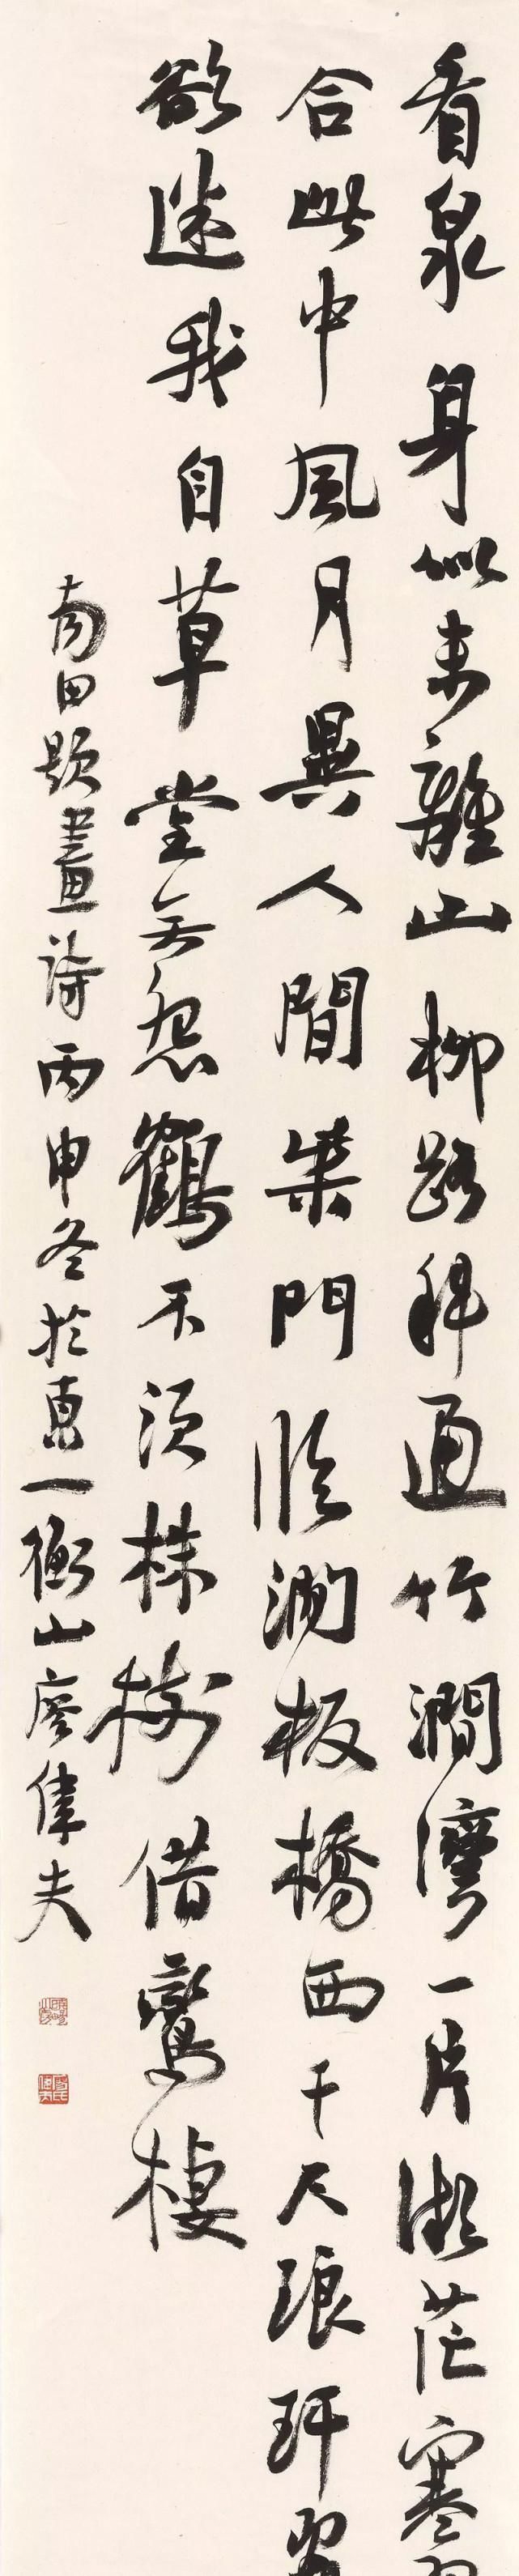 看泉身似未離山柳路斜通竹澗灣一片澌茫寒
合此中風月異人間柴門臨澗板橋西千尺琅玕翠
欲迷我自草堂無怨鶴不須株樹借鸞棲
南田題畫詩丙申冬於惠一衡山廖偉夫